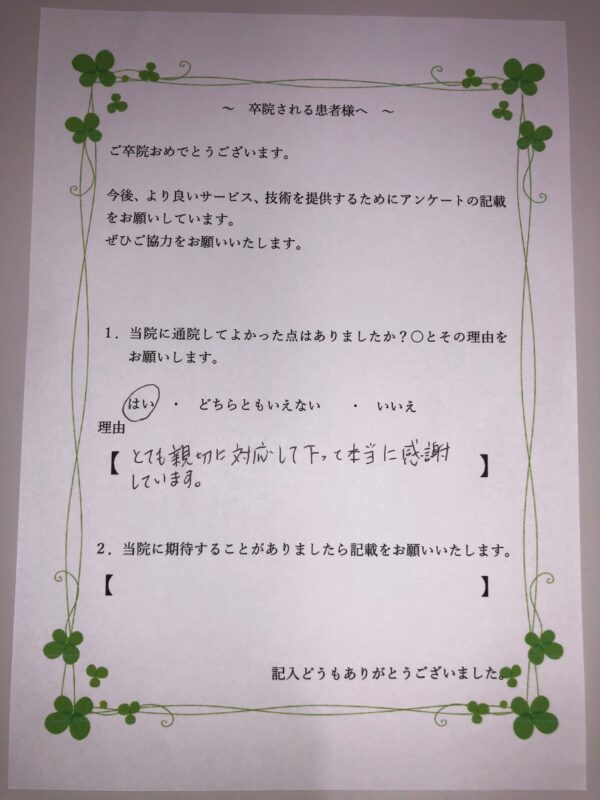 ～ 卒院される患者様へ ～
ご卒院おめでとうございます。
今後、より良いサービス、技術を提供するためにアンケートの記載
をお願いしています。
ぜひご協力をお願いいたします。
1．当院に通院してよかった点はありましたか？〇とその理由を
お願いします。
はい ・ どちらともいえない ・ いいえ
理由
【とても親切に対応して下って本当に感謝
しています。】
2．当院に期待することがありましたら記載をお願いいたします。
【 】
記入どうもありがとうございました。